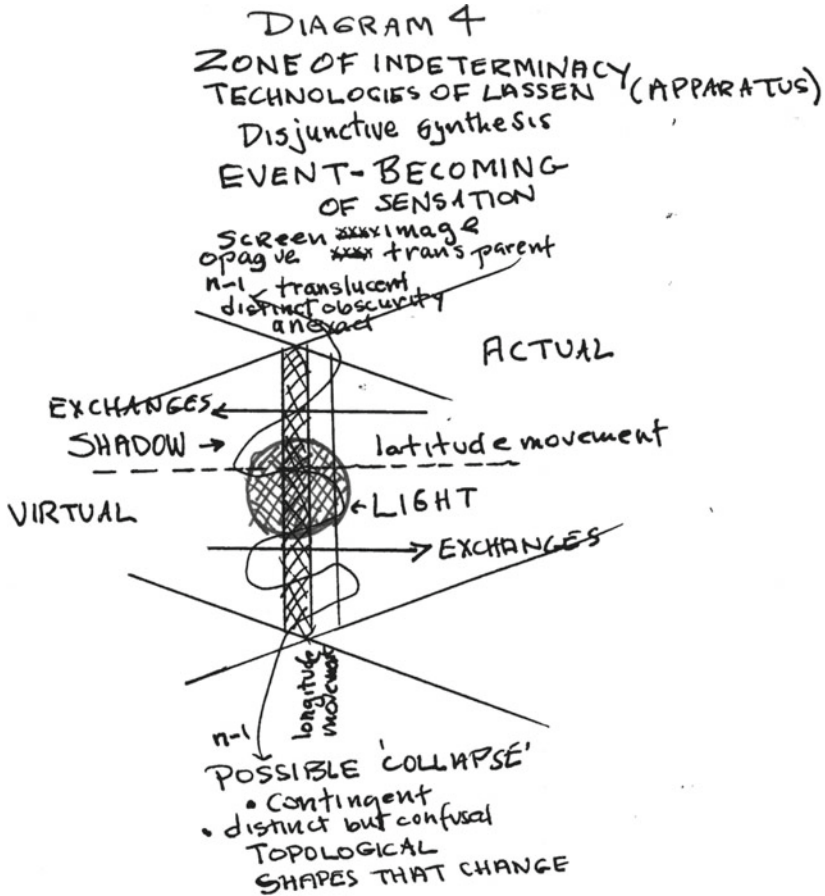 DIAGRAM 4
ZONE OF INDETERMINACY
TECHNOLOGIES OF LASSEN (APPARATUS)
Disjunctive synthesis
EVENT-BECOMING
OF SENSATION
SCREEN xxxx image
opaque xxxx transparent
n-1 translucent
distinct obscurity
anexact
ACTUAL
EXCHANGES
SHADOW →
latitude movement
VIRTUAL
← LIGHT
EXCHANGES
longitude
movement
n-1
POSSIBLE 'COLLAPSE'
• contingent
• distinct but confusal
TOPOLOGICAL
SHAPES THAT CHANGE